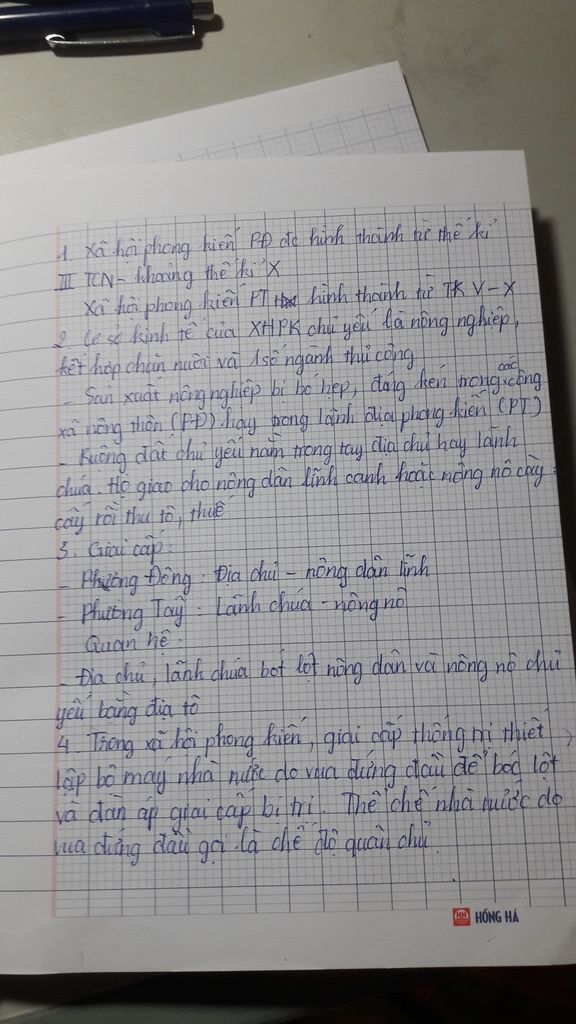 1. Xã hội phong kiến PĐ đc hình thành từ thế kỉ
III TCN - khoảng thế kỉ X
Xã hội phong kiến PT hình thành từ TK V - X
2. Cơ sở kinh tế của XHPK chủ yếu là nông nghiệp,
kết hợp chăn nuôi và 1 số ngành thủ công
- Sản xuất nông nghiệp bị bó hẹp, đóng kén trong các công
xã nông thôn (PĐ) hay trong lãnh địa phong kiến (PT)
- Ruộng đất chủ yếu nằm trong tay địa chủ hay lãnh
chúa. Họ giao cho nông dân lĩnh canh hoặc nông nô cày
cấy rồi thu tô, thuế
3. Giai cấp:
- Phương Đông: Địa chủ - nông dân lĩnh
- Phương Tây: Lãnh chúa - nông nô
Quan hệ:
- Địa chủ, lãnh chúa bót lột nông dân và nông nô chủ
yếu bằng địa tô
4. Trong xã hội phong kiến, giai cấp thống trị thiết
lập bộ máy nhà nước do vua đứng đầu để bóc lột
và đàn áp giai cấp bị trị. Thể chế nhà nước do
vua đứng đầu gọi là chế độ quân chủ.
HH HỒNG HÀ